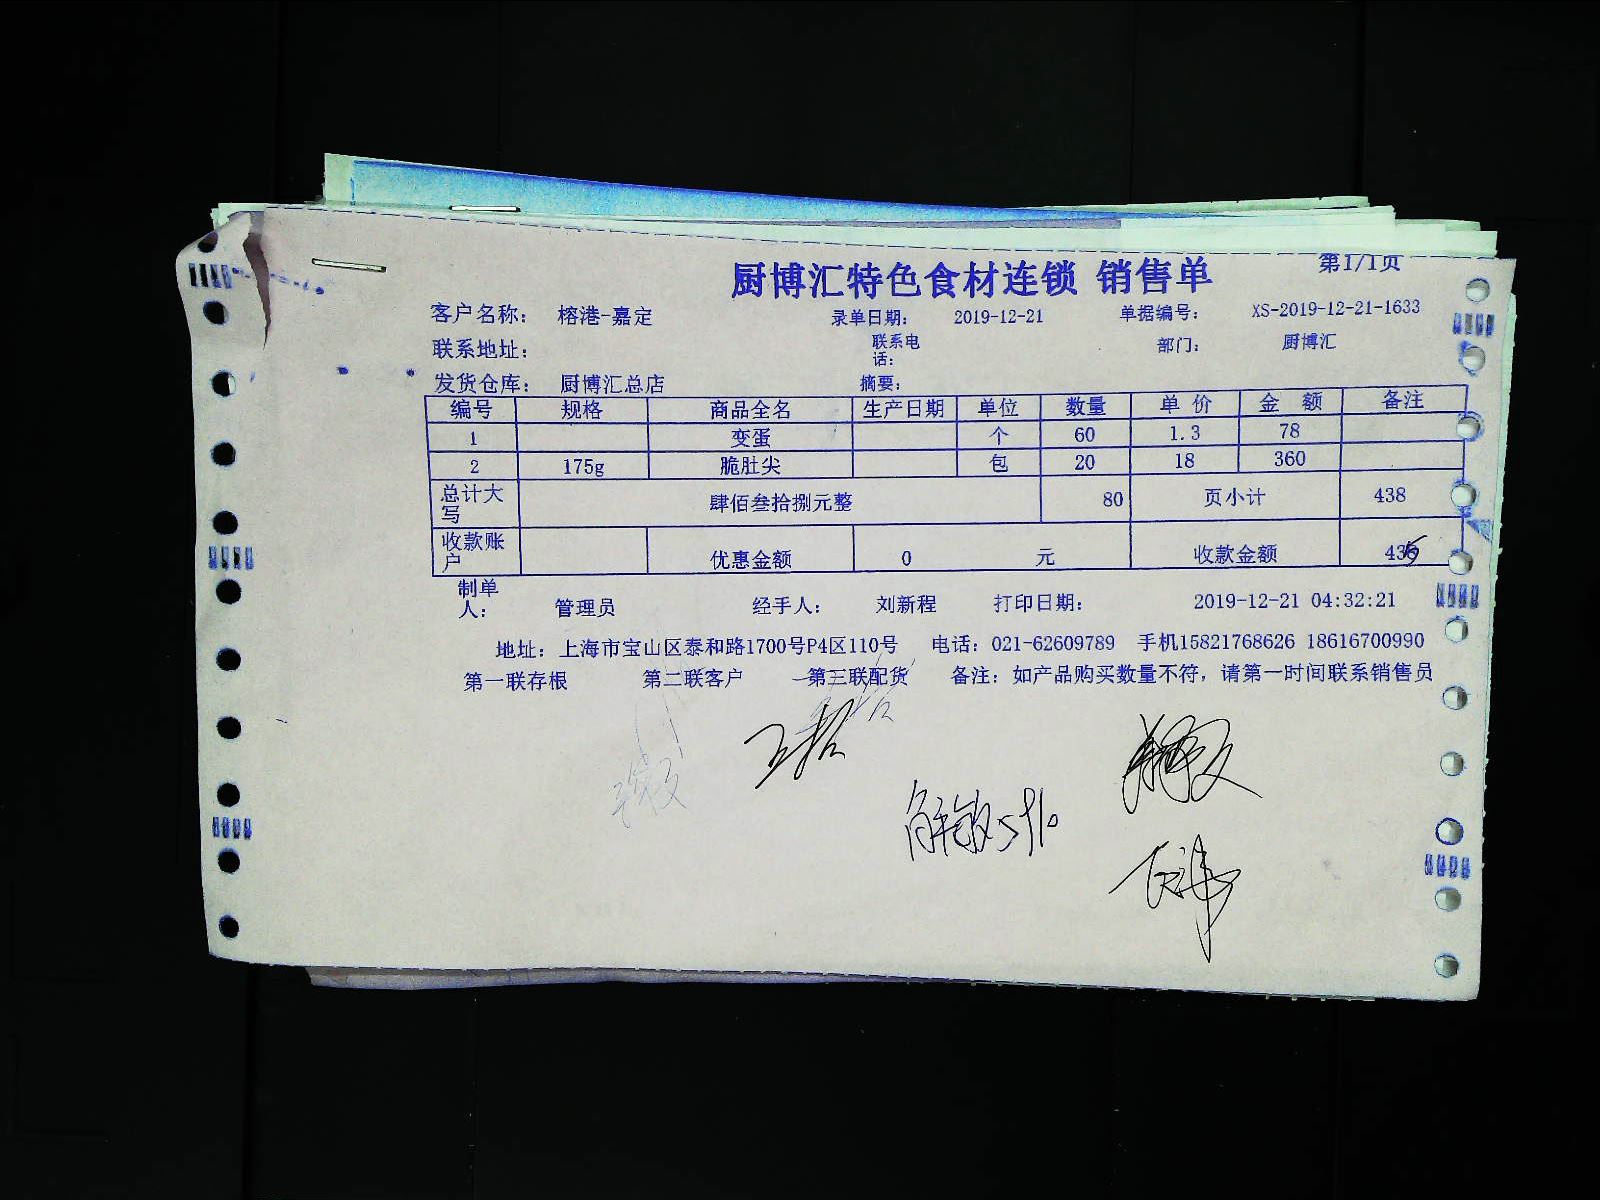 厨博汇特色食材连锁 销售单
第1/1页
客户名称： 榕港-嘉定 录单日期： 2019-12-21 单据编号： XS-2019-12-21-1633
联系地址： 联系电话： 部门： 厨博汇
发货仓库： 厨博汇总店 摘要：
编号 规格 商品全名 生产日期 单位 数量 单 价 金 额 备注
1 变蛋 个 60 1.3 78
2 175g 脆肚尖 包 20 18 360
总计大写 肆佰叁拾捌元整 80 页小计 438
收款账户 优惠金额 0 元 收款金额
制单人： 管理员 经手人： 刘新程 打印日期： 2019-12-21 04:32:21
地址：上海市宝山区泰和路1700号P4区110号 电话：021-62609789 手机15821768626 18616700990
第一联存根 第二联客户 第三联配货 备注：如产品购买数量不符，请第一时间联系销售员